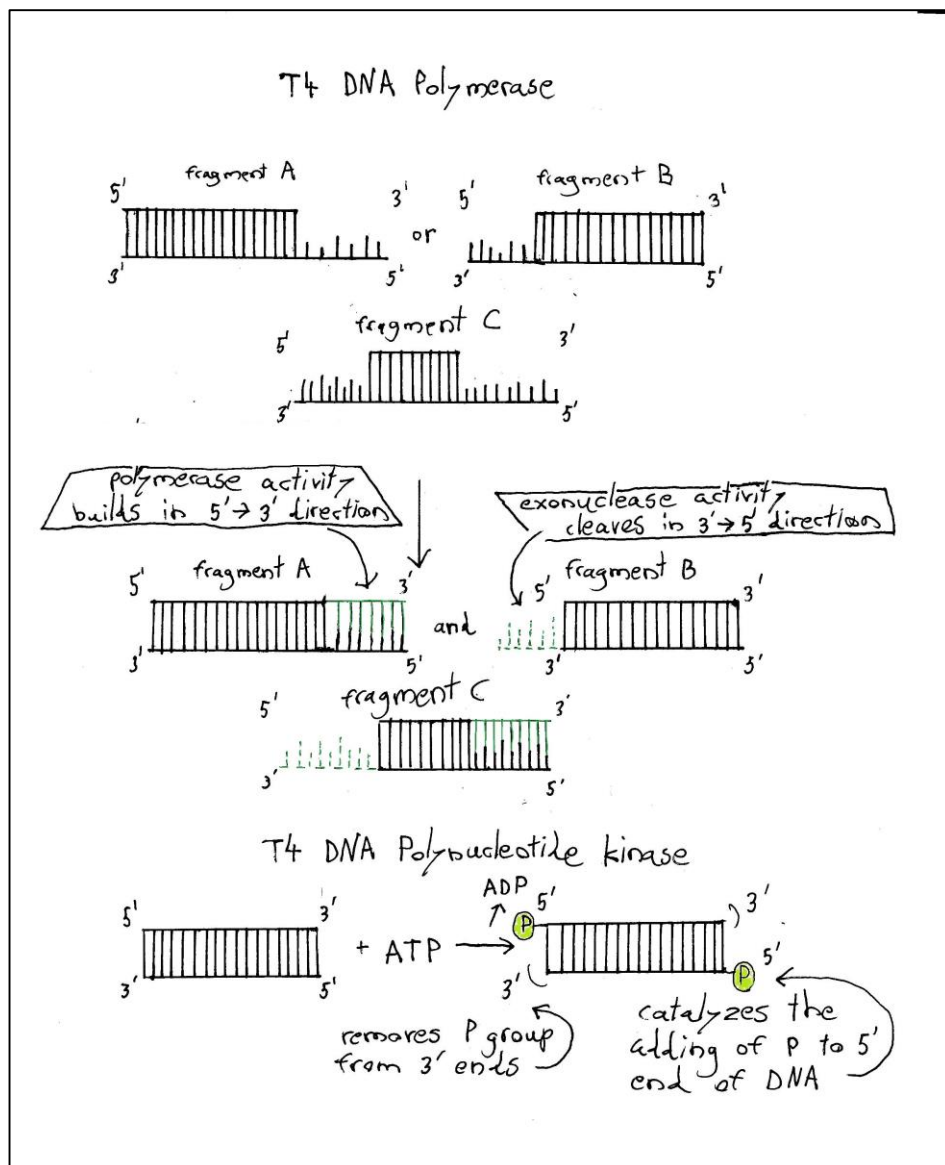 T4 DNA Polymerase
fragment A
fragment B
5'
3'
5'
3'
or
3'
5'
3'
5'
fragment C
5'
3'
3'
5'
polymerase activity
builds in 5' → 3' direction
exonuclease activity
cleaves in 3' → 5' direction
fragment A
fragment B
5'
3'
5'
3'
and
3'
5'
3'
5'
fragment C
5'
3'
3'
5'
T4 DNA Polynucleotide kinase
5'
3'
ADP
5'
3'
+ ATP
P
3'
5'
3'
P
5'
removes P group
from 3' ends
catalyzes the
adding of P to 5'
end of DNA